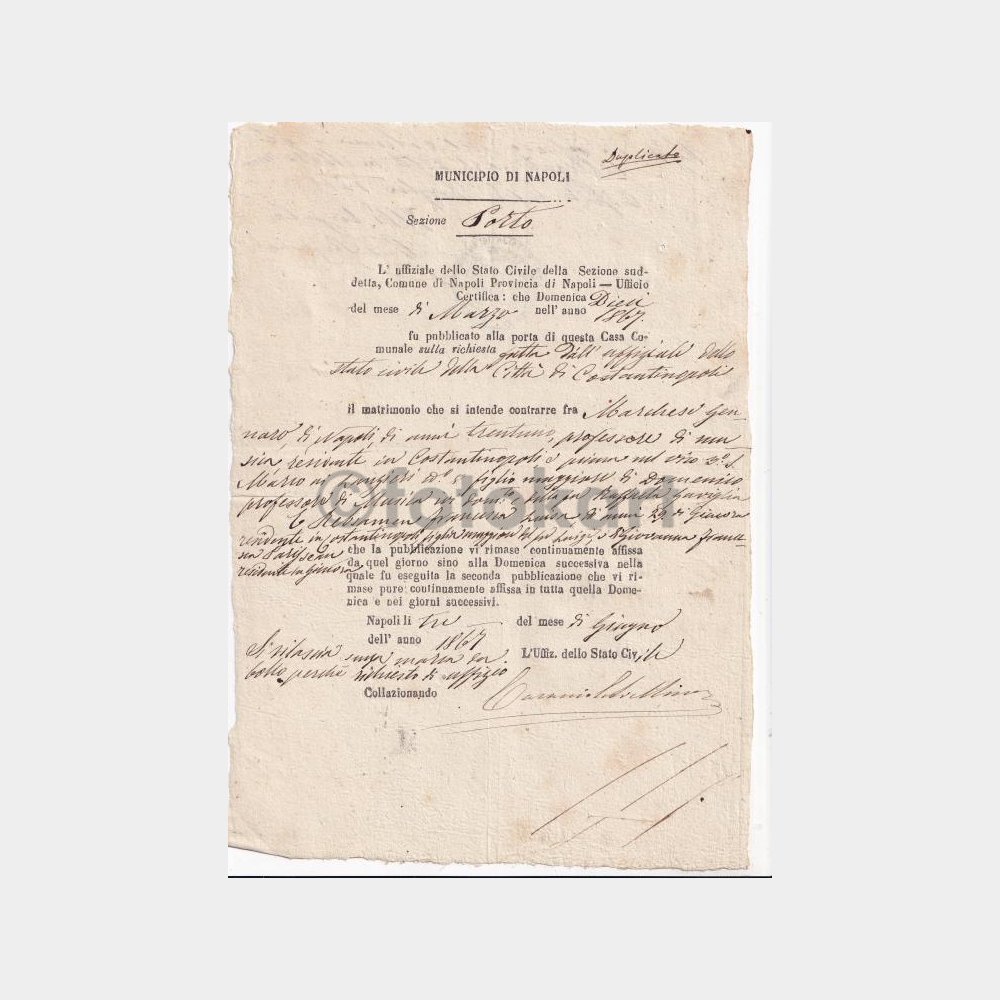 Duplicato
MUNICIPIO DI NAPOLI
Sezione Porto
L' uffiziale dello Stato Civile della Sezione sud-
detta, Comune di Napoli Provincia di Napoli — Ufficio
Certifica: che Domenica Dieci
del mese di Marzo nell' anno 1867.
fu pubblicato alla porta di questa Casa Co-
munale sulla richiesta fatta dall' uffiziale dello
stato civile della Città di Costantinopoli
il matrimonio che si intende contrarre fra Marchese Gen-
naro, di Napoli, di anni trentuno, professore di mu
sica residente in Costantinopoli e prima nel vico
figlio maggiore di Domenico
professore di Musica e di
di anni 29 di Ginevra
residente in Costantinopoli figlia maggiore del fu Luigi e Giovanna
residente in Ginevra
©fotokart
che la pubblicazione vi rimase continuamente affissa
da quel giorno sino alla Domenica successiva nella
quale fu eseguita la seconda pubblicazione che vi ri-
mase pure continuamente affissa in tutta quella Dome-
nica e nei giorni successivi.
Napoli li tre del mese di Giugno
dell' anno 1867
L'Uffiz. dello Stato Civile
Si rilascia senza marca da
bollo perchè richiesto di uffizio
Collazionando